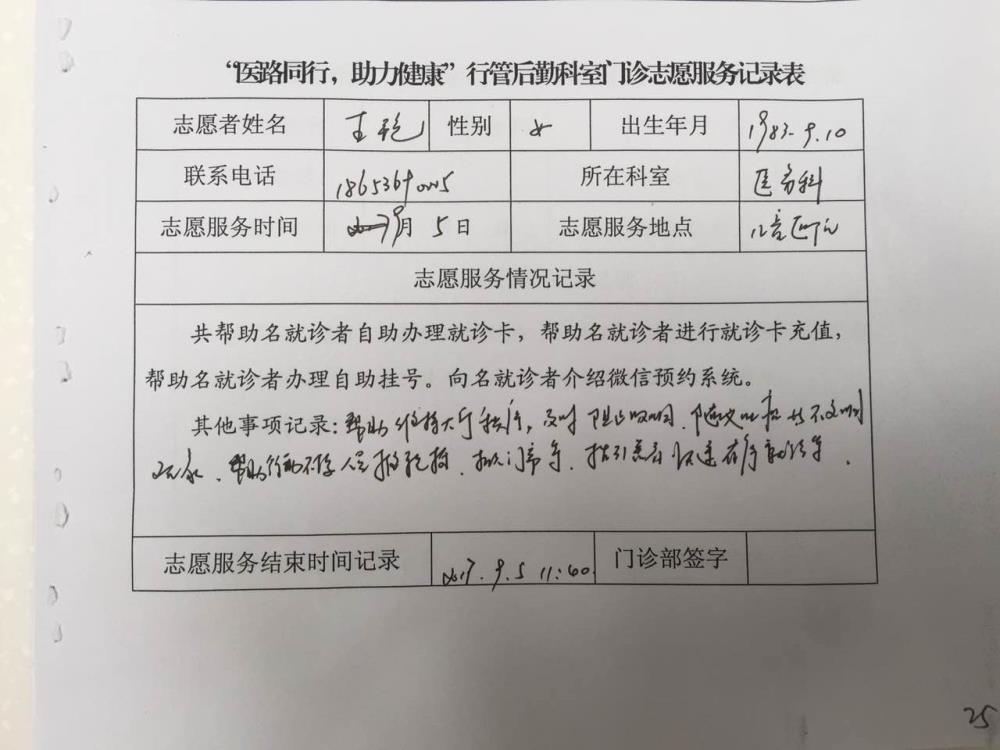 “医路同行，助力健康”行管后勤科室门诊志愿服务记录表
志愿者姓名 王艳 性别 女 出生年月 1983.9.10
联系电话 所在科室 医务科
志愿服务时间 9月5日 志愿服务地点
志愿服务情况记录
共帮助名就诊者自助办理就诊卡，帮助名就诊者进行就诊卡充值，
帮助名就诊者办理自助挂号。向名就诊者介绍微信预约系统。
其他事项记录：帮助维持大厅秩序，及时阻止吸烟、随地吐痰等不文明
现象、帮助行动不便人员 指引患者快速有序就诊等.
志愿服务结束时间记录 2017.9.5 11:40 门诊部签字
25